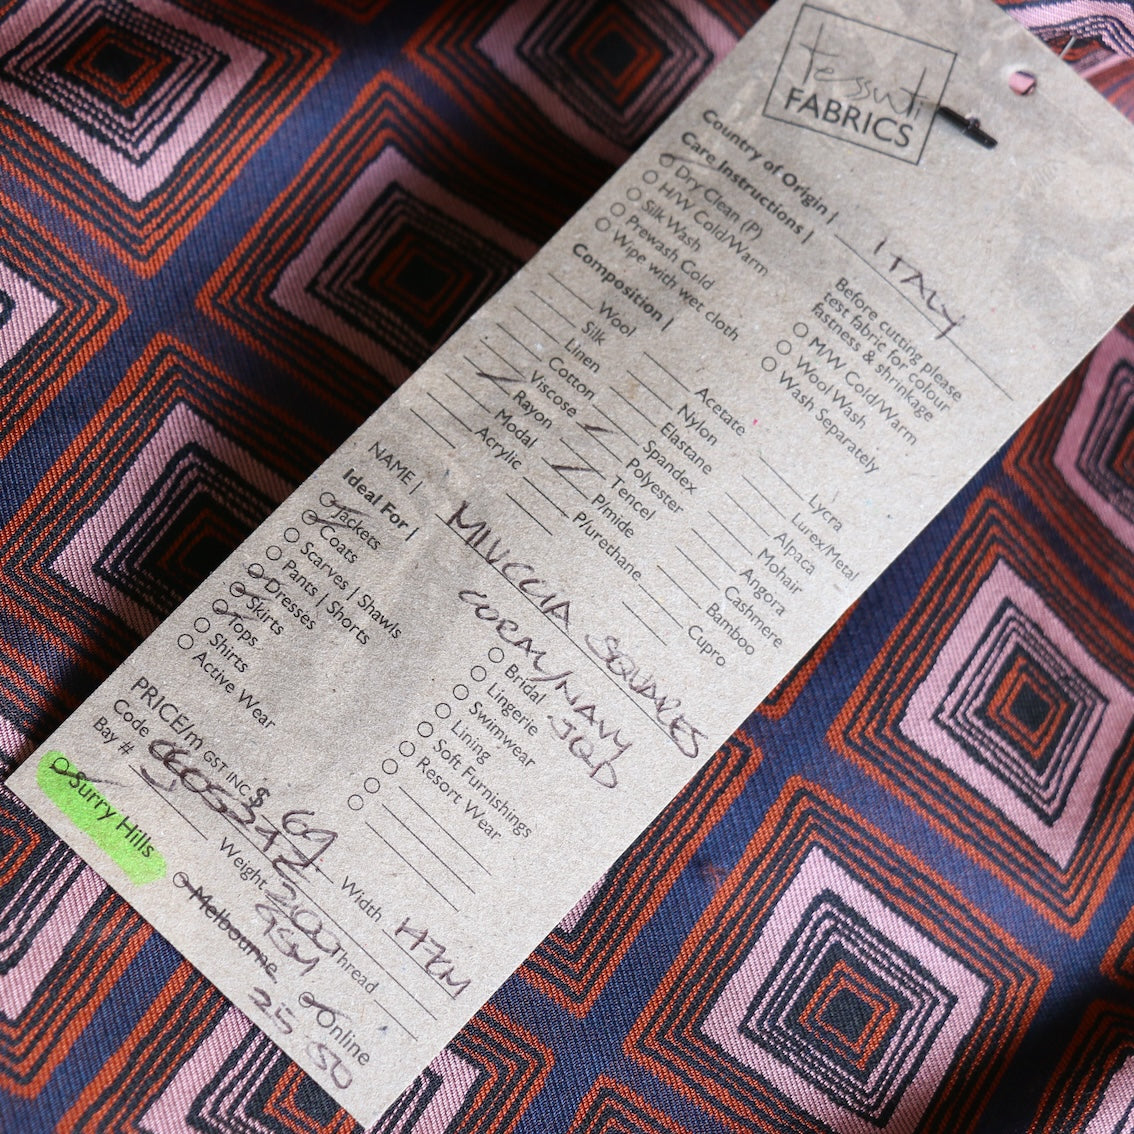 Tessuti
FABRICS
Country of Origin | ITALY
Care Instructions |
Dry Clean (P)
H/W Cold/Warm
Silk Wash
Prewash Cold
Wipe with wet cloth
Before cutting please
test fabric for colour
fastness & shrinkage
M/W Cold/Warm
Wool Wash
Wash Separately
Composition |
Wool
Silk
Linen
Cotton
Viscose
Rayon
Modal
Acrylic
Acetate
Nylon
Elastane
Spandex
Polyester
Tencel
P/mide
P/urethane
Lycra
Lurex/Metal
Alpaca
Mohair
Angora
Cashmere
Bamboo
Cupro
NAME | MIUCCIA SQUARES
CORAL/NAVY
JQD
Ideal For |
Jackets
Coats
Scarves | Shawls
Pants | Shorts
Dresses
Skirts
Tops
Shirts
Active Wear
Bridal
Lingerie
Swimwear
Lining
Soft Furnishings
Resort Wear
PRICE/m GST INC. $ 69
Code
Width
Bay #
Weight 200
GSM
Thread
Surry Hills
Melbourne
Online